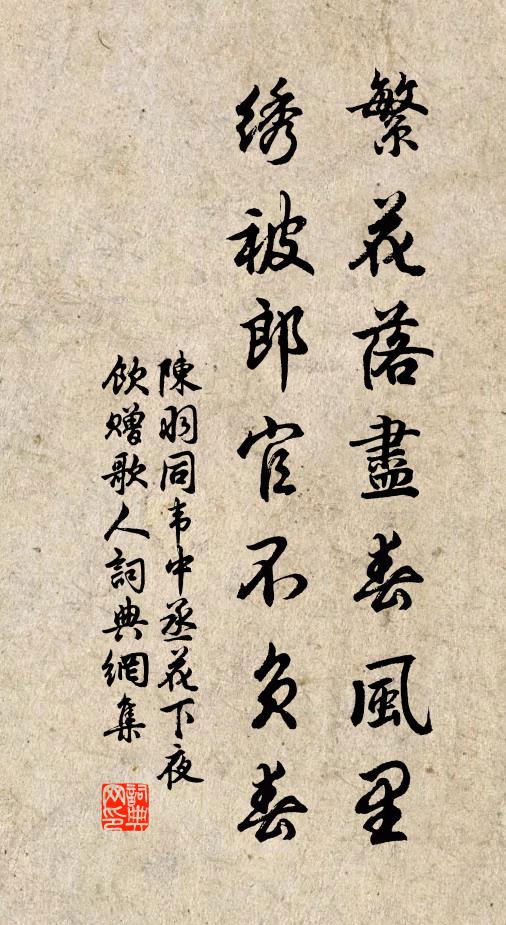 繁花落盡春風里
绣被郎官不負春
陳羽同韦中丞花下夜
飲贈歌人詞典網集
詞典
网印